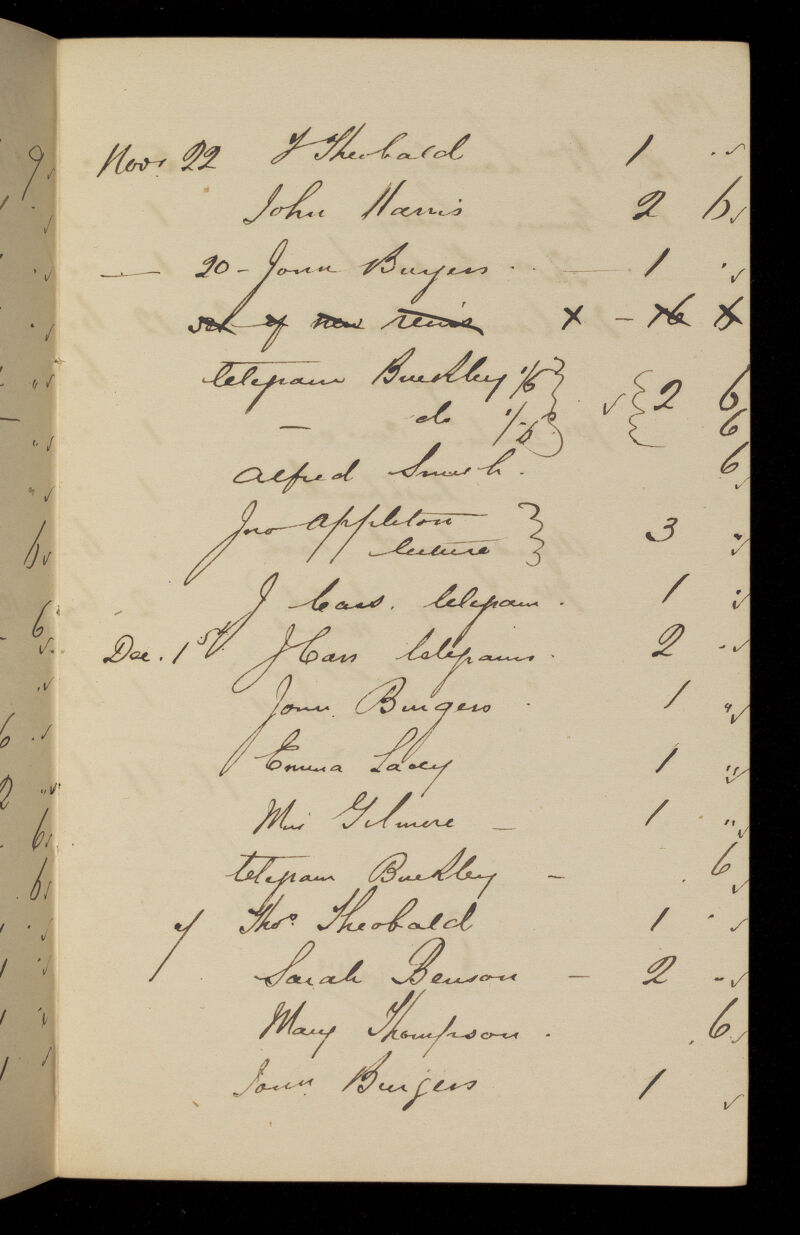 Novr 22 J Theobald 1 . ✓
John Harris 2 6 ✓
— 20 - John Burgess . — 1 . ✓
set of new reins X - 16 6
telegram Buckley 1/6 } ✓ { 2 6
— do 1/- 6
Alfred Smith . 6 ✓
Jno Appleton
lecture } 3 " ✓
J Cass . telegram . 1 . ✓
Dec. 1st J Cass telegrams . 2 . ✓
John Burgess . 1 " ✓
Emma Lacey 1 " ✓
Mrs Gilmore — 1 " ✓
telegram Buckley — . 6 ✓
7 Thos. Theobald 1 . ✓
Sarah Benson — 2 " ✓
Mary Thompson . . 6 ✓
John Burgess 1 ✓